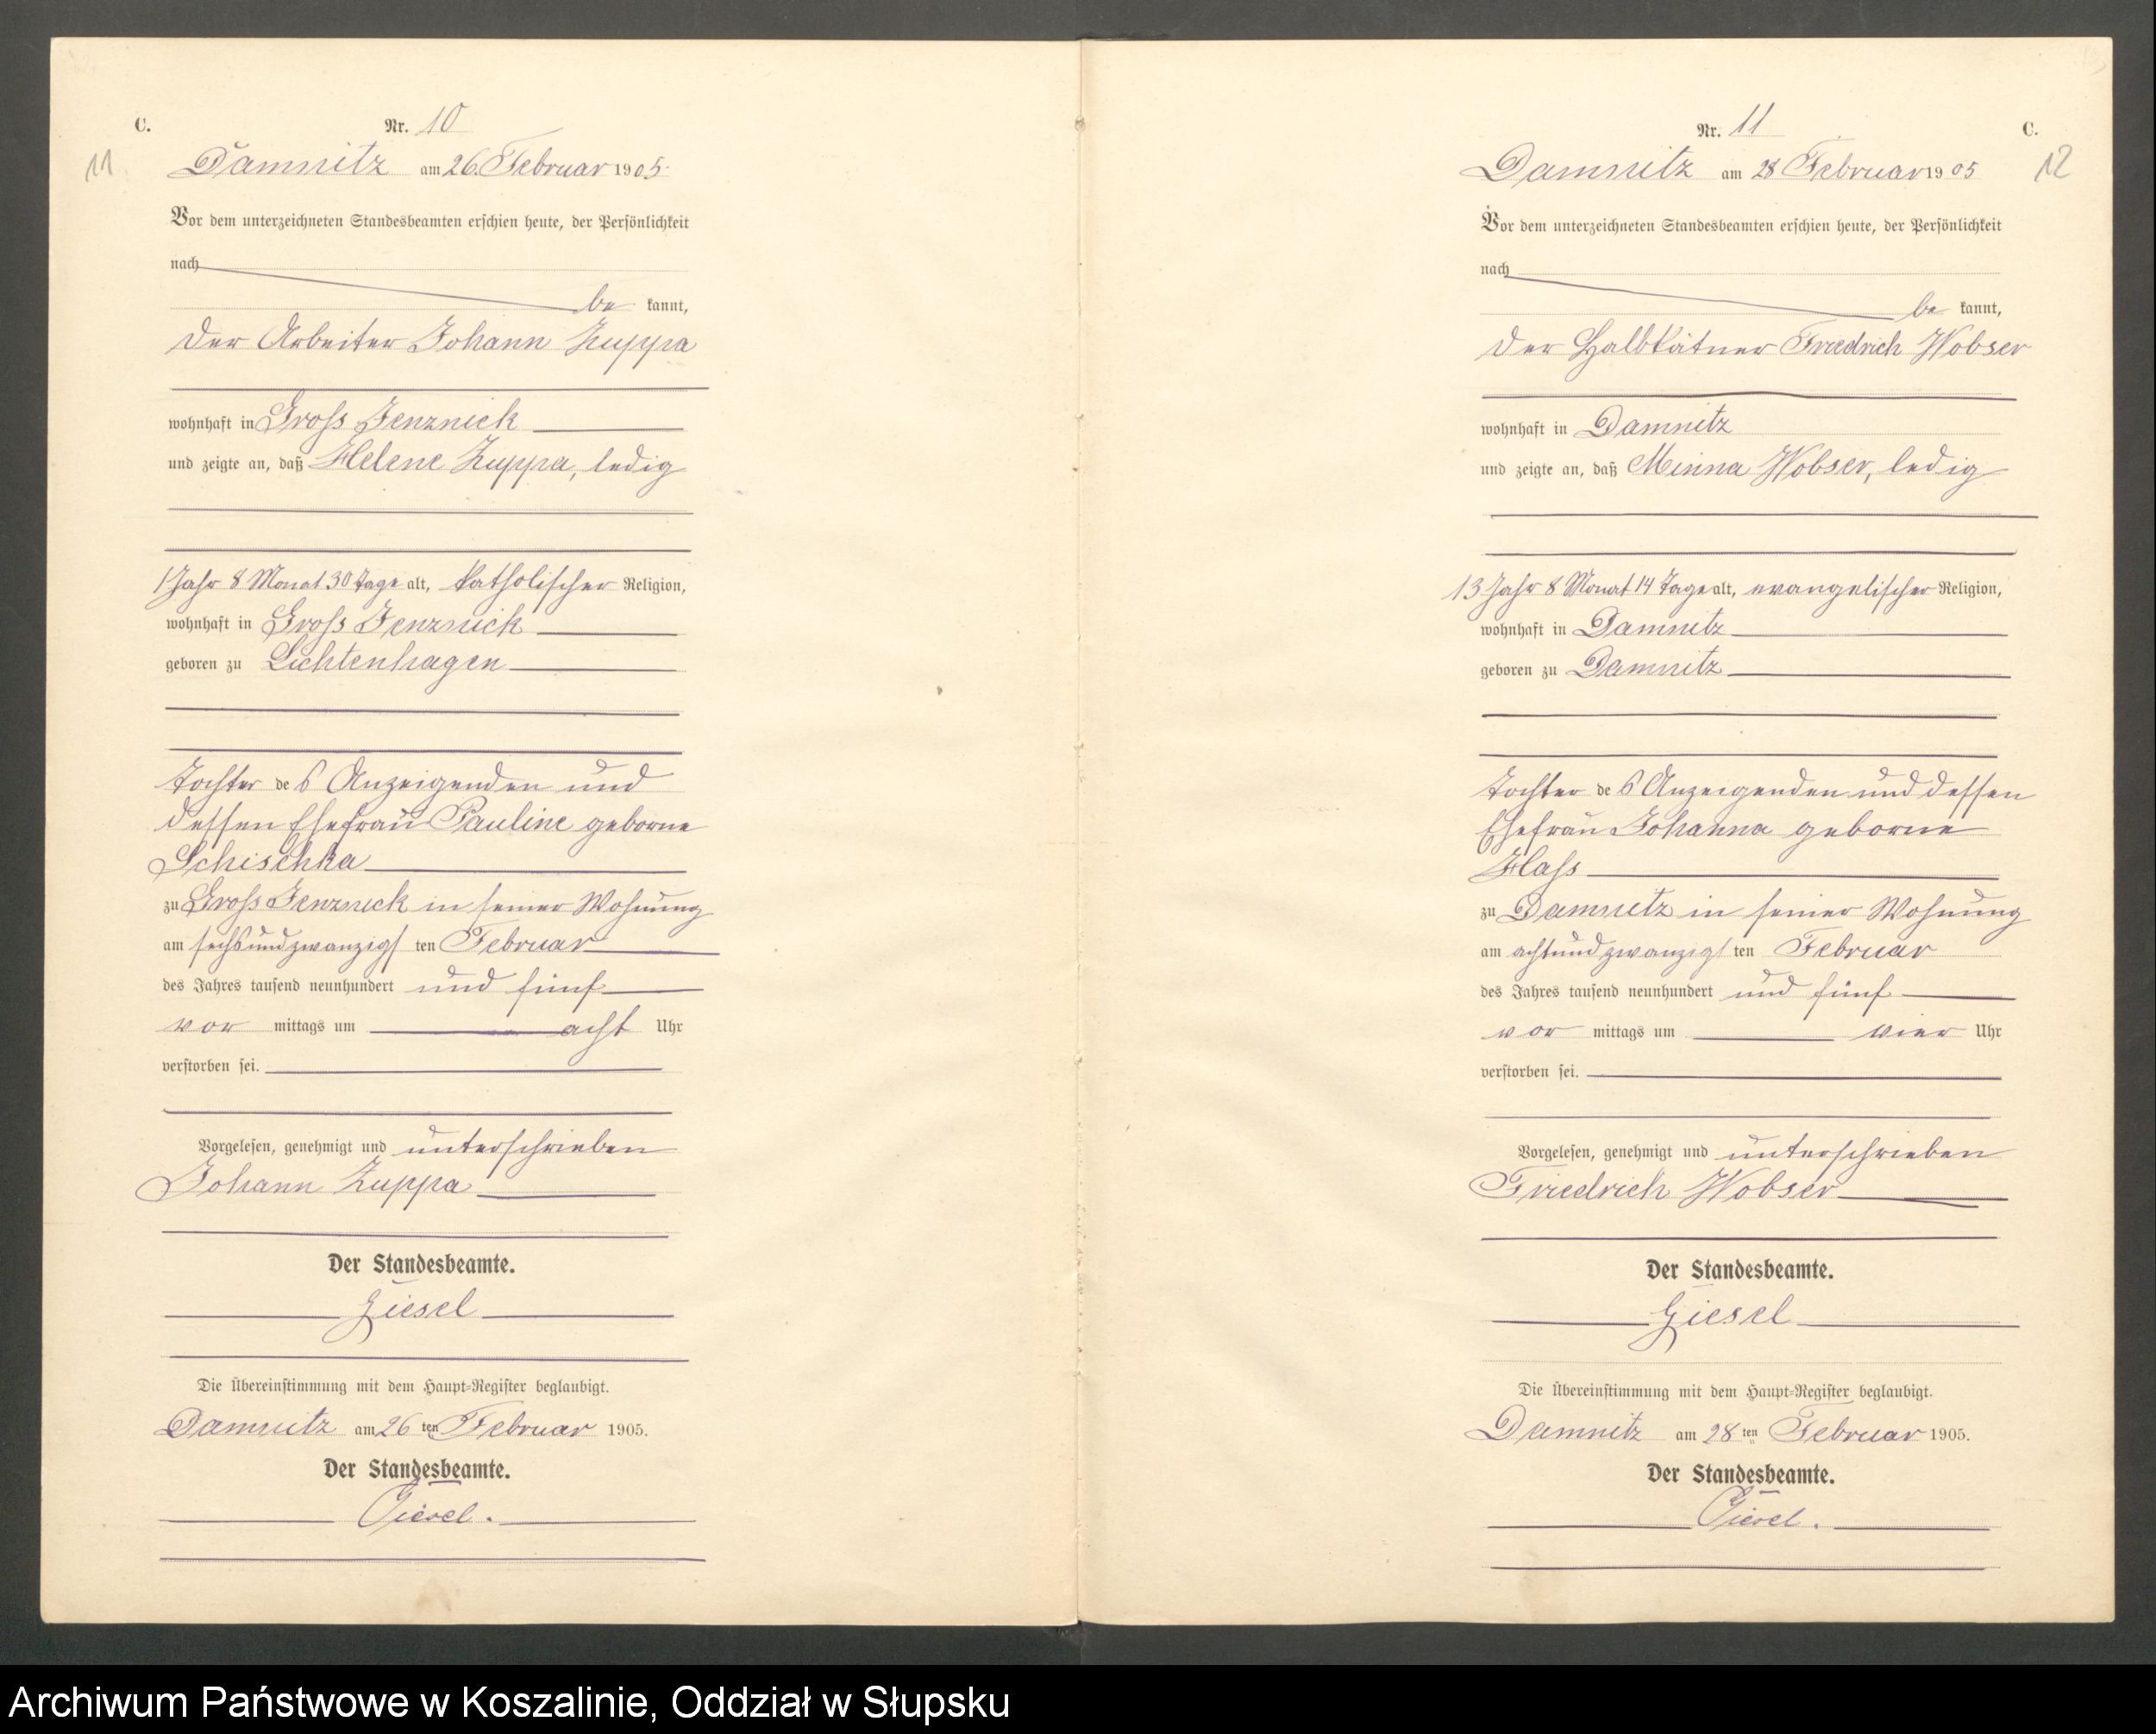 C.
Nr. 10
11
Damnitz am 26. Februar 1905.
Vor dem unterzeichneten Standesbeamten erschien heute, der Persönlichkeit
nach
be kannt,
der Arbeiter Johann Zuppa
wohnhaft in Gross Jenznick
und zeigte an, daß Helene Zuppa, ledig
1 Jahr 8 Monat 30 Tage alt, katholischer Religion,
wohnhaft in Gross Jenznick
geboren zu Lichtenhagen
Tochter des Anzeigenden und
dessen Ehefrau Pauline geborne
Schischka
zu Gross Jenznick in seiner Wohnung
am sechsundzwanzigsten Februar
des Jahres tausend neunhundert und fünf
vor mittags um acht Uhr
verstorben sei.
Vorgelesen, genehmigt und unterschrieben
Johann Zuppa
Der Standesbeamte.
Giesel
Die Übereinstimmung mit dem Haupt-Register beglaubigt.
Damnitz am 26 ten Februar 1905.
Der Standesbeamte.
Giesel.
Nr. 11
C.
12
Damnitz am 28 Februar 1905
Vor dem unterzeichneten Standesbeamten erschien heute, der Persönlichkeit
nach
be kannt,
der Halbkätner Friedrich Wobser
wohnhaft in Damnitz
und zeigte an, daß Minna Wobser, ledig
13 Jahr 8 Monat 14 Tage alt, evangelischer Religion,
wohnhaft in Damnitz
geboren zu Damnitz
Tochter des Anzeigenden und dessen
Ehefrau Johanna geborne
Hass
zu Damnitz in seiner Wohnung
am achtundzwanzigsten Februar
des Jahres tausend neunhundert und fünf
vor mittags um vier Uhr
verstorben sei.
Vorgelesen, genehmigt und unterschrieben
Friedrich Wobser
Der Standesbeamte.
Giesel
Die Übereinstimmung mit dem Haupt-Register beglaubigt.
Damnitz am 28 ten Februar 1905.
Der Standesbeamte.
Giesel.
Archiwum Państwowe w Koszalinie, Oddział w Słupsku